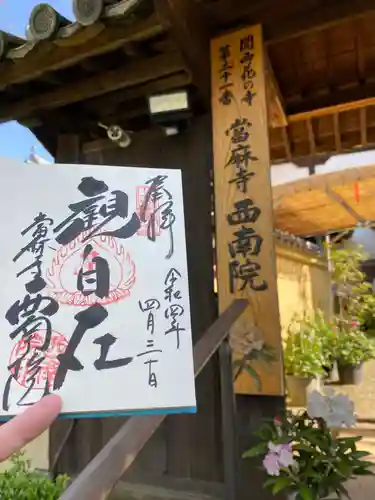 関西花の寺
第二十一番
當麻寺西南院
奉拝
令和四年
四月三十日
觀自在
當麻寺
西南院